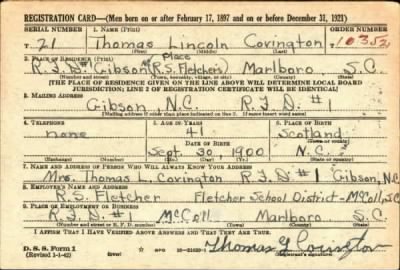 REGISTRATION CARD—(Men born on or after February 17, 1897 and on or before December 31, 1921)
SERIAL NUMBER 1. NAME (Print) ORDER NUMBER
T 21 Thomas Lincoln Covington 10352
(First) (Middle) (Last)
2. PLACE OF RESIDENCE (Print) Place
R.F.D. #1 Gibson (R.S. Fletcher's) Marlboro S.C.
(Number and street) (Town, township, village, or city) (County) (State)
[THE PLACE OF RESIDENCE GIVEN ON THE LINE ABOVE WILL DETERMINE LOCAL BOARD
JURISDICTION; LINE 2 OF REGISTRATION CERTIFICATE WILL BE IDENTICAL]
3. MAILING ADDRESS
Gibson, N.C. R.F.D. #1
[Mailing address if other than place indicated on line 2. If same insert word same]
4. TELEPHONE 5. AGE IN YEARS 6. PLACE OF BIRTH
none 41 Scotland
DATE OF BIRTH (Town or county)
Sept. 30 1900 N.C.
(Exchange) (Number) (Mo.) (Day) (Yr.) (State or country)
7. NAME AND ADDRESS OF PERSON WHO WILL ALWAYS KNOW YOUR ADDRESS
Mrs. Thomas L. Covington R.F.D #1 Gibson, N.C
8. EMPLOYER'S NAME AND ADDRESS
R.S. Fletcher Fletcher School District - McColl, S.C.
9. PLACE OF EMPLOYMENT OR BUSINESS
R.F.D. #1 McColl Marlboro S.C.
(Number and street or R. F. D. number) (Town) (County) (State)
I AFFIRM THAT I HAVE VERIFIED ABOVE ANSWERS AND THAT THEY ARE TRUE.
D. S. S. Form 1 (Revised 1-1-42) (over) GPO Thomas L Covington